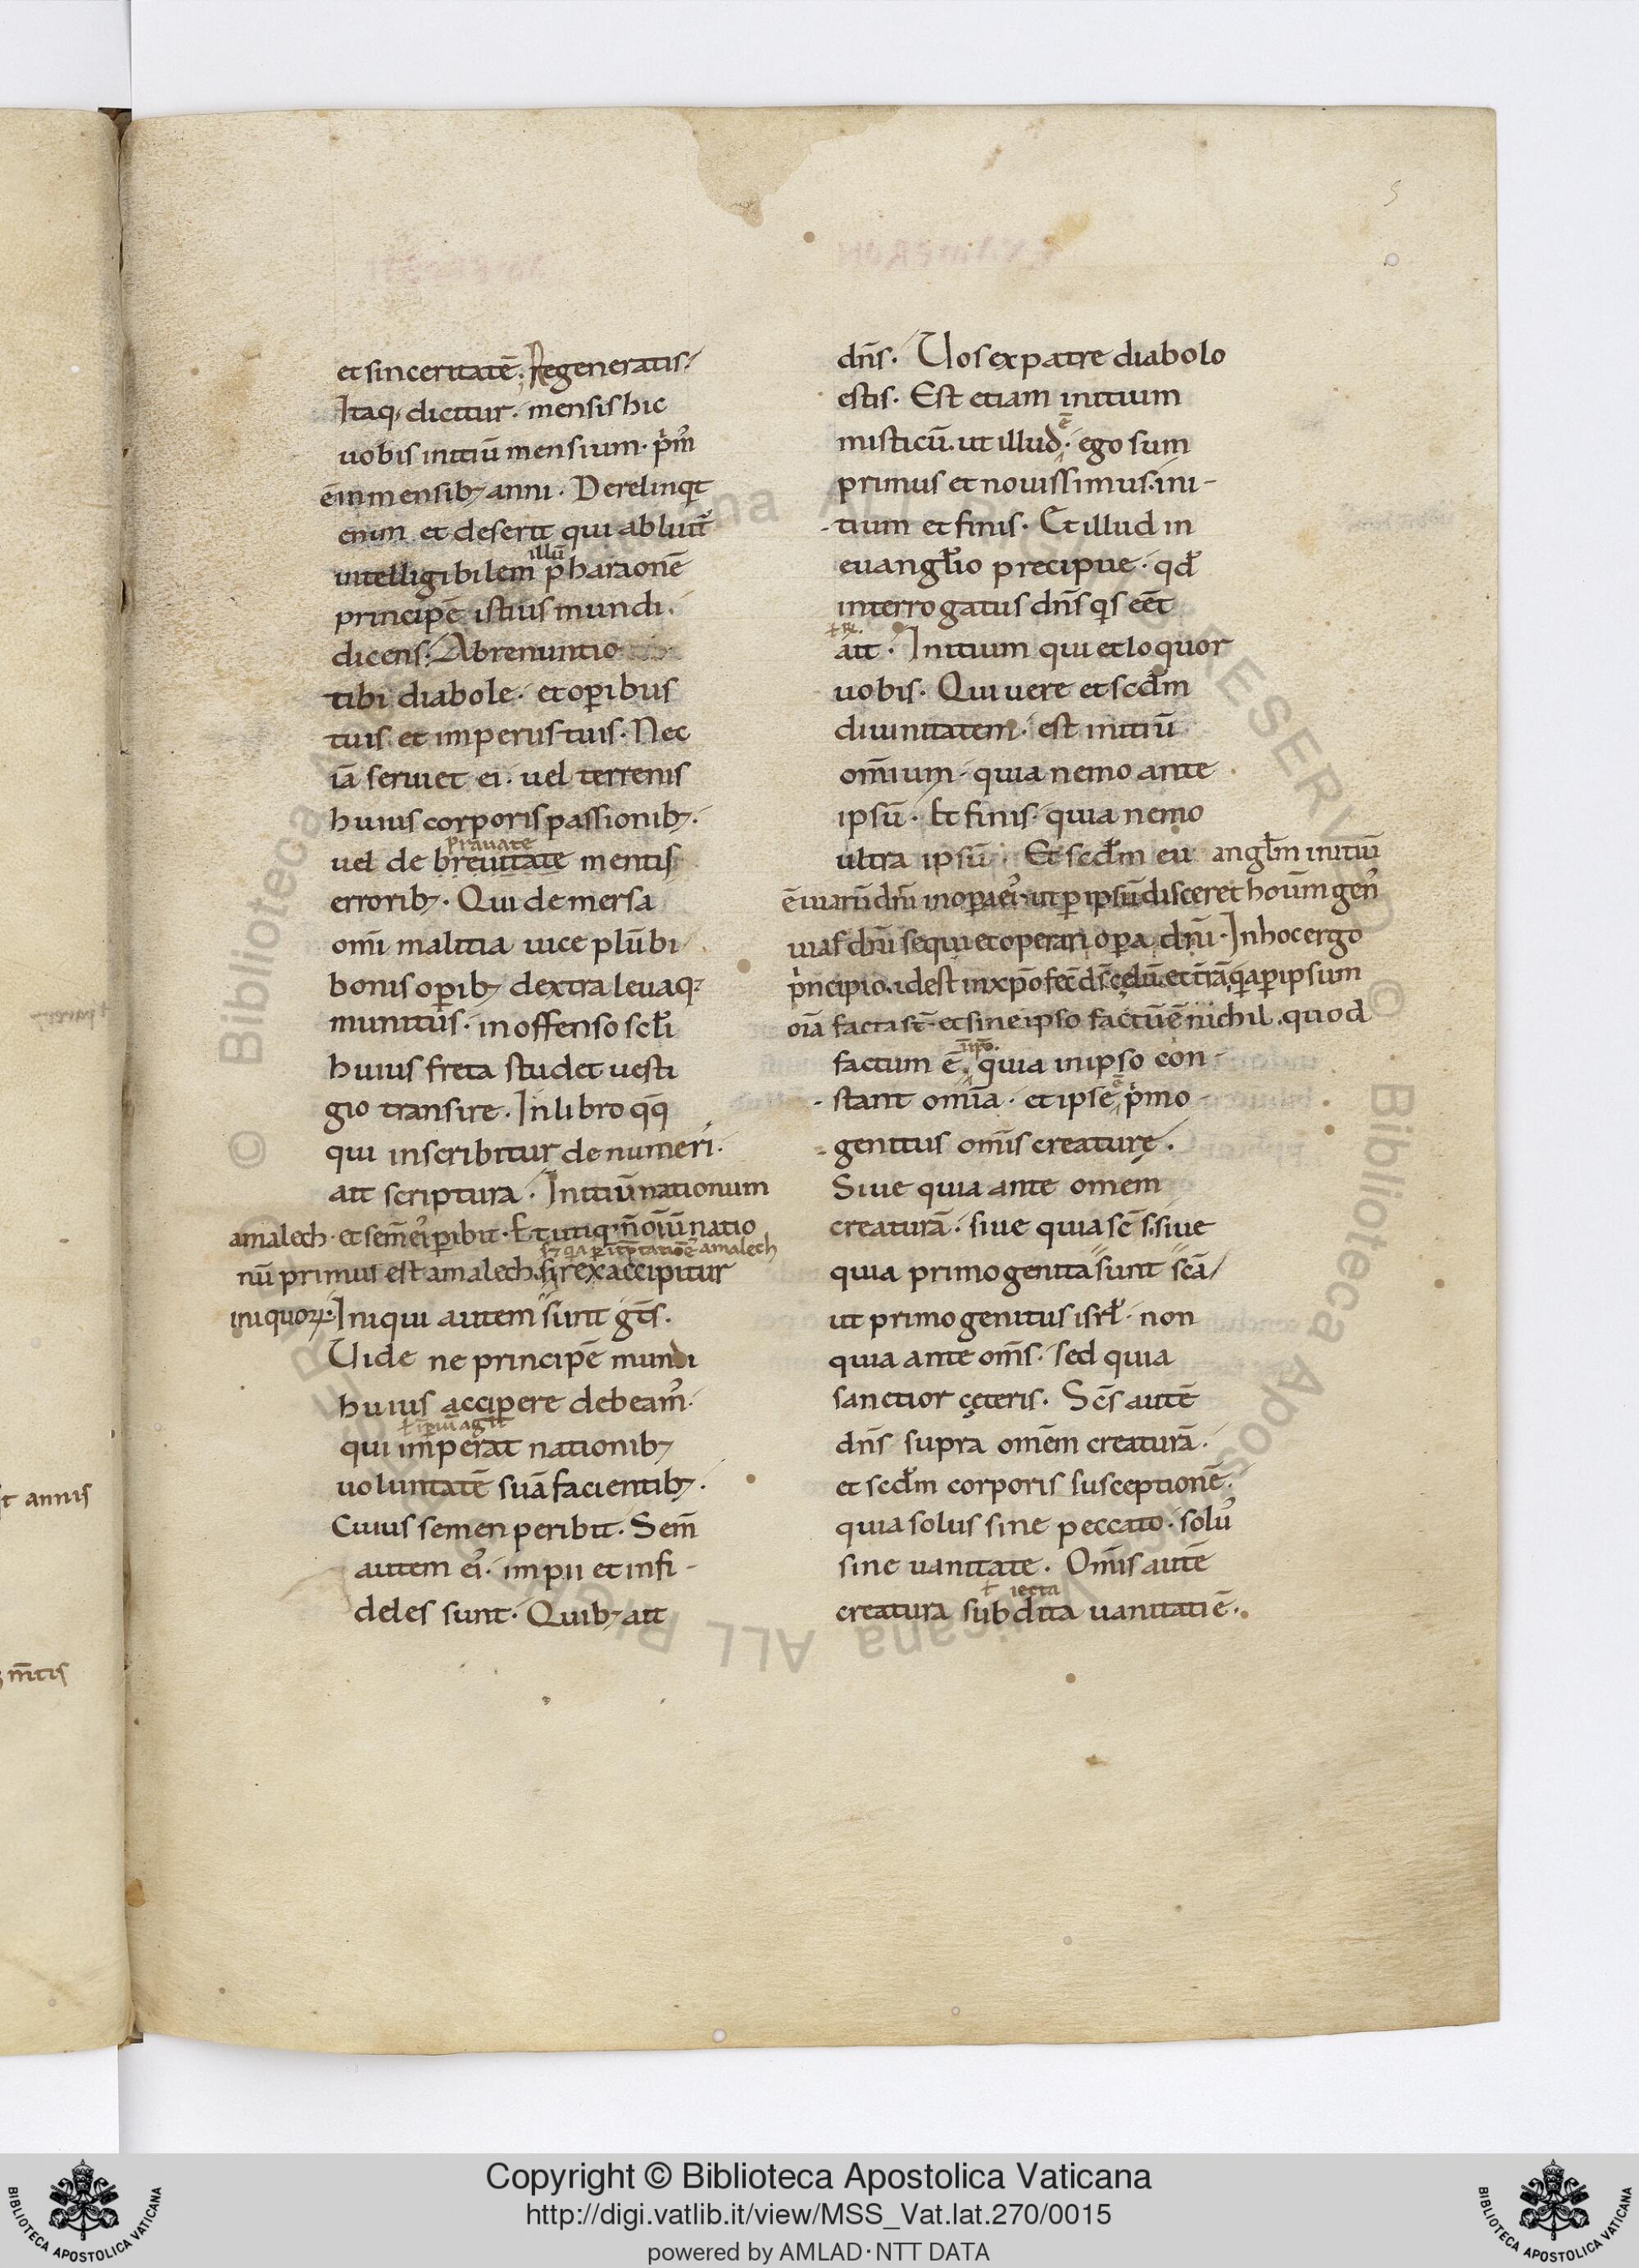 5
et sinceritatē. Regeneratis
Itaq; dicitur. mensis hic
uobis initiū mensium. pͥm᷒
ē in mensib; anni. Derelinqͥt
enim et deserit qui abluit᷒
illū
intelligibilem pharaonē
principē istius mundi.
dicens. Abrenuntio
tibi diabole. et oꝑibus
tuis et imperiis tuis. Nec
iā seruiet ei. uel terrenis
huius corporis passionib;.
prauate
uel de breuitate mentis
errorib;. Qui demersa
omī malitia uice plūbi
bonis oꝑib; dextra leuaq;
munitus. inoffenso sc̄li
huius freta studet uesti
gio transire. In libro qͦq
qui inscribitur de numeri.
ait scriptura. Initiū nationum
amalech. et sem̄ ei᷒ ꝑibit. Et utiq; n̄ oīū natio
nū primus est amalech. s; rex accipitur
iniquoꝝ. Iniqui autem sunt gt̄s.
Uide ne principē mundi
huius acciꝑere debeam᷒.
qui imperat nationib;
uoluntatē suā facientib;.
Cuius semen peribit. Sem̄
autem ei᷒. impii et infi-
deles sunt. Quib; ait
dn̄s. Uos ex patre diabolo
estis. Est etiam initium
ē
misticū. ut illud. ego sum
primus et nouissimus. ini-
tium et finis. Et illud in
euangl̄io precipue. qd̄
interrogatus dn̄s qͥs eēt
ait. Initium qui et loquor
uobis. Qui uere et scd̄m
diuinitatem. est initiū
om̄ium. quia nemo ante
ipsū. Et finis. quia nemo
ultra ipsū. Et scd̄m eu angl̄m initiū
ē uiarū dn̄i in oꝑa ei᷒. ut ꝑ ipsū disceret hoūm gen᷒
uias dn̄i sequi et operari oꝑa dn̄i. In hoc ergo
pͥncipio. idest in xp̄o fec̄ ds̄ cęlū et tr̄ā. qͥa ꝑ ipsum
oīa facta st̄. et sine ipso factū ē nichil. quod
factum ē. quia in ipso con-
stant om̄ia. et ipse ē pͥmo-
genitus om̄is creaturę.
Siue quia ante omem
creaturā. siue quia sc̄s. siue
quia primogenita sunt sc̄ā
ut primogenitus isrl̄. non
quia ante om̄s. sed quia
sanctior cęteris. Sc̄s autē
dn̄s supra omēm creaturā.
et scd̄m corporis susceptionē.
quia solus sine peccato. solu᷒
sine uanitate. Om̄is autē
ł iecta
creatura subdita uanitati ē.
st annis
m̄tis
Copyright © Biblioteca Apostolica Vaticana
http://digi.vatlib.it/view/MSS_Vat.lat.270/0015
powered by AMLAD·NTT DATA
BIBLIOTECA APOSTOLICA VATICANA
BIBLIOTECA APOSTOLICA VATICANA